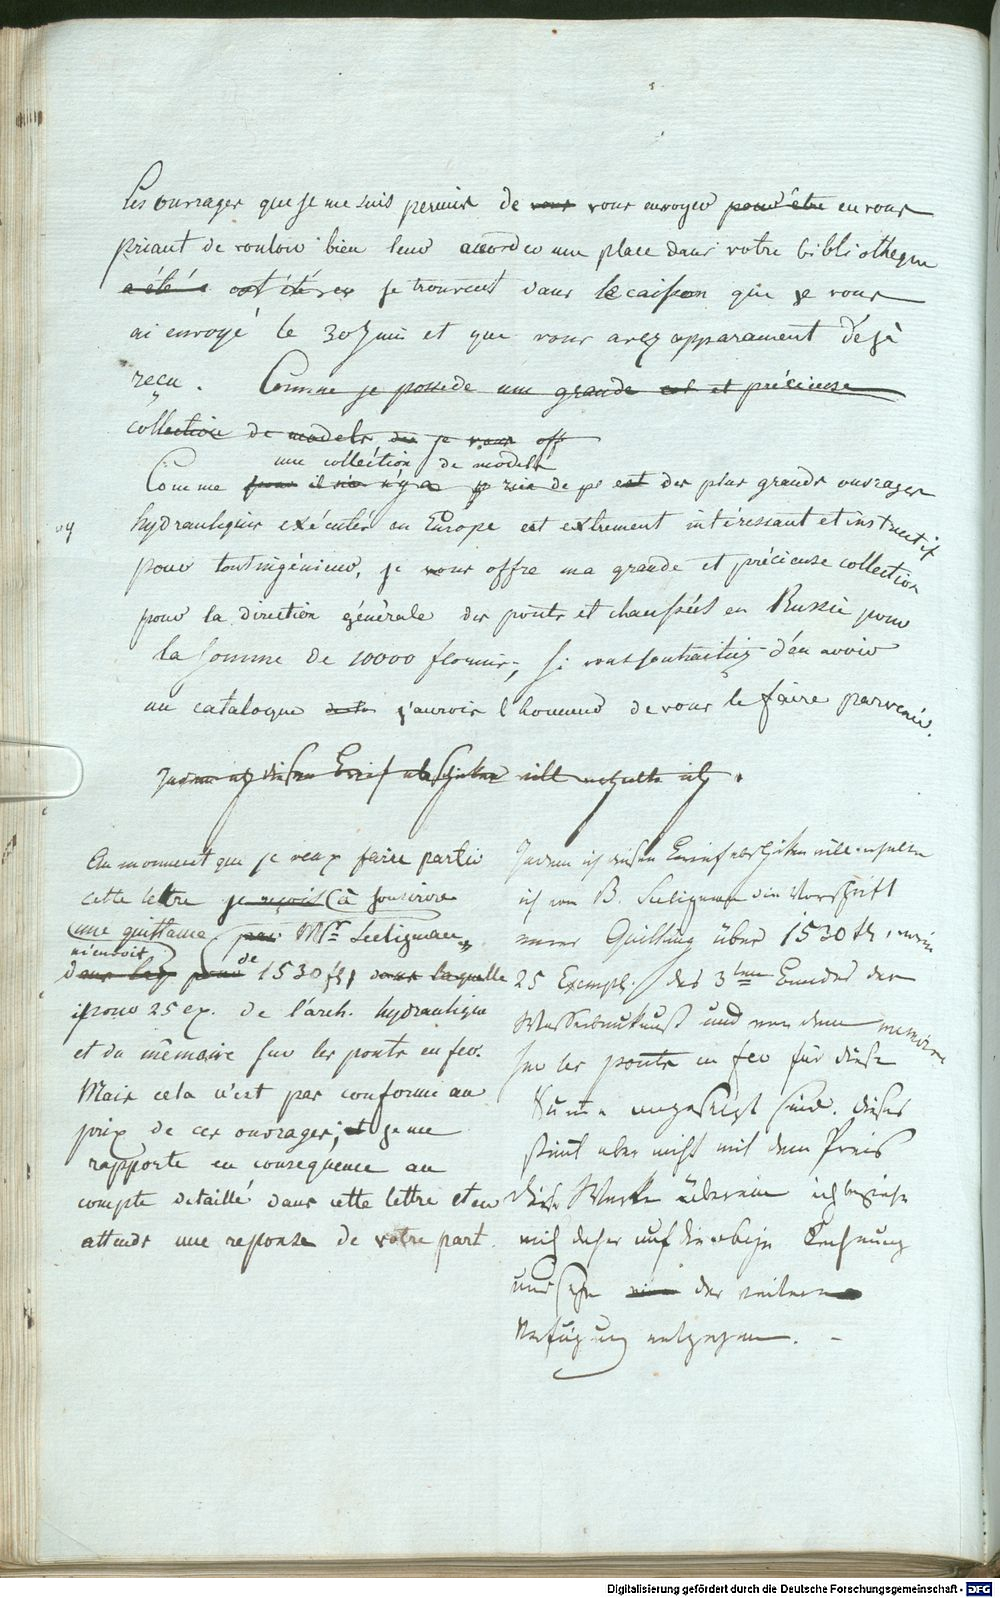 Les ouvrages que je me suis permis de vous vous envoyer pour être en vous
priant de vouloir bien leur accorder une place dans votre bibliotheque
a été se trouvent dans le caisson que je vous
ai envoyé le 30 Juin et que vous avez apparament déjà
reçu. Comme je possede une grande et précieuse
collection de models je vous off
une collection de models
Comme il n'y a rien de des plus grands ouvrages
hydrauliques exécutés en Europe est extrement intéressant et instructif
pour tout ingénieur, je vous offre ma grande et précieuse collection
pour la direction générale des ponts et chaussées en Russie pour
la somme de 10000 florins; si vous souhaitiez d'en avoir
un catalogue j'aurois l'honneur de vous le faire parvenir.
Indem ich diesen Brief abschicken will erhalte ich
Au moment que je veux faire partir
cette lettre je reçois (à souscrire
une quittance par Mr. Seeligmann
m'envoit
dans laq pour de 1530 fl, dans laquelle
pour 25 ex. de l'arch. hydraulique
et du mémoire sur les ponts en fer.
Mais cela n'est pas conforme au
prix de ces ouvrages; et je me
rapporte en consequence au
compte detaillé dans cette lettre et en
attends une reponse de votre part.
Indem ich diesen Brief abschicken will erhalte
ich von B. Seeligmann die Vorschrift
einer Quittung über 1530 fl, worin
25 Exempl. des 3ten Bandes der
Wasserbaukunst und von dem memoire
sur les ponts en fer für diese
Summe angesetzt sind. dieses
stimt aber nicht mit dem Preis
diese Werke überein ich beziehe
mich daher auf die obige Rechnung
und sehe der weiteren
Verfügung entgegen. –
Digitalisierung gefördert durch die Deutsche Forschungsgemeinschaft - DFG